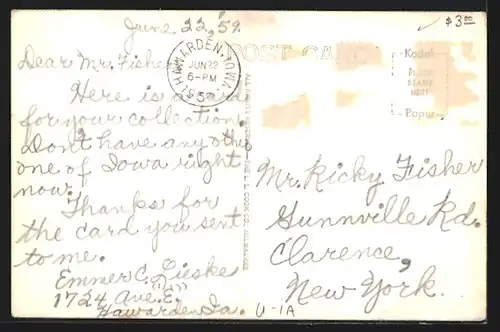 June 22, '59.
$3.00
Dear Mr. Fisher,
HAWARDEN, IOWA
JUN 22
6-PM
1959
POST CARD
Here is a card
for your collection.
Don't have any other
one of Iowa right
now.
Thanks for
the card you sent
to me.
Emmer C. Lieske
1724 Ave. "E"
Hawarden Ia.
L. L. COOK CO., MILWAUKEE
Kodak
PLACE
STAMP
HERE
Paper
Mr. Ricky Fisher
Gunnville Rd.
Clarence,
New York.
U-1A